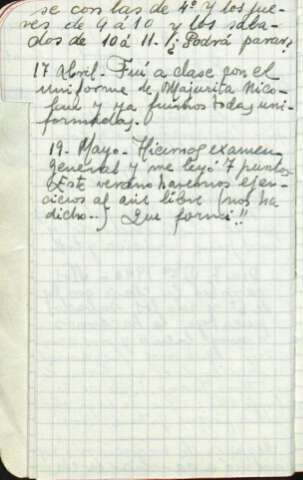 se con las de 4º y los jue-
ves de 9 á 10 y los sába-
dos de 10 á 11. ¿Podrá parar?
17 Abril.- Fuí a clase con el
uniforme de Majurita Nico-
lau y ya fuimos todas uni-
formadas.
19. Mayo.- Hicimos examen
general y me leyó 7 puntos
Este verano haremos ejer-
cicios al aire libre (nos ha
dicho..) Que forma!!